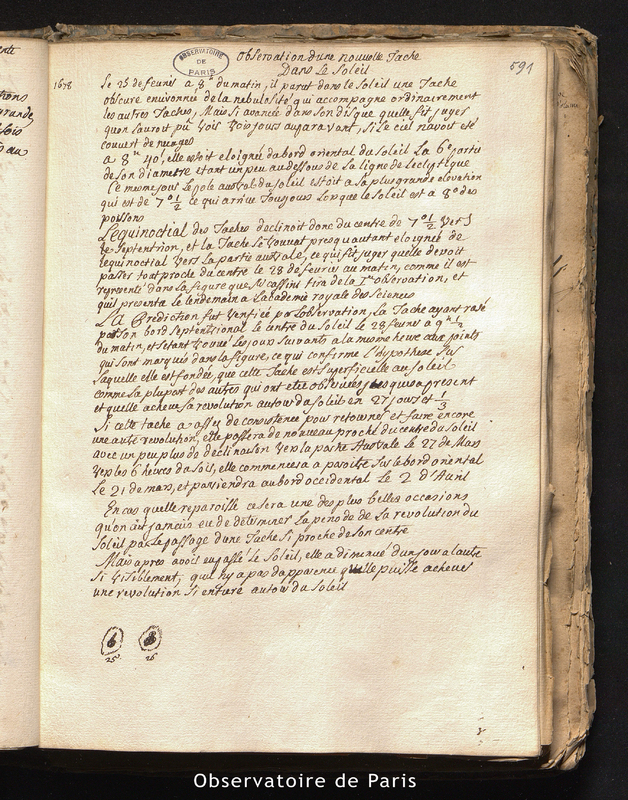 Observation d'une nouvelle Tache
Dans Le Soleil
591
OBSERVATOIRE
DE
PARIS
1678
Le 25 de feurier a 8h du matin, il parut dans le Soleil une Tache
obscure enuironneé de la nebulosité qui accompagne ordinairement
les autres Taches, Mais si avanceé dans son disque quelle fit juger
quon lauroit pu Voir Trois jours auparavant, si Le ciel n'avoit eté
couvert de nuages
a 8h 40', elle estoit eloigneé du bord oriental du Soleil La 6e partie
de son diametre etant un peu au dessous de La ligne de Lecliptique
Ce mesme jour Le pole austral du Soleil estoit a sa plus grande elevation
qui est de 7 0 1/2 ce qui arrive Toujours Lorsque le Soleil est a 8° des
poissons
L'equinoctial des Taches declinoit donc du centre de 7 0 1/2 Vers
Le Septentrion, et La Tache Se trouvet presqu autant eloigneé de
Lequinoctial Vers La partie australe, ce qui fit juger quelle devoit
passer tout proche du centre le 28 de feurier au matin, comme il est
representé dans la figure que Mr Cassini tira de la 1re observation, et
quil presenta Le lendemain a L'academie royale des Sciences
La Prediction fut Verifieé par L'observation, La Tache ayant rasé
par son bord Septentrional Le centre du Soleil Le 28 feurier a 9h 1/2
du matin, et s'etant trouveé Les jours suivants a la mesme heure aux points
qui sont marqués dans la figure, ce qui confirme L'hypothese sur
laquelle elle est fondeé, que cette Tache est superficielle au Soleil
comme La plupart des autres qui ont eté observeés jusques a present
et quelle acheve sa revolution autour du Soleil en 27 jours et 1/3
Si cette tache a assez de consistence pour retourner et faire encore
une autre revolution, elle passera de nouveau proche du centre du Soleil
avec un peu plus de declinaison Vers la partie Australe Le 27 de Mars
Vers les 6 heures du soir, elle commencera a paroitre sur le bord oriental
Le 21 de mars, et parviendra au bord occidental Le 2 d'Avril
En cas quelle reparoisse ce sera une des plus belles occasions
qu'on ait jamais eu de determiner La periode de La revolution du
Soleil par Le passage d'une Tache Si proche de son centre
Mais apres avoir passé Le Soleil, elle a diminué d'un jour a lautre
Si Visiblement, quil ny a pas d'apparence quelle puisse achever
une revolution Si entiere autour du Soleil
25
26
Observatoire de Paris